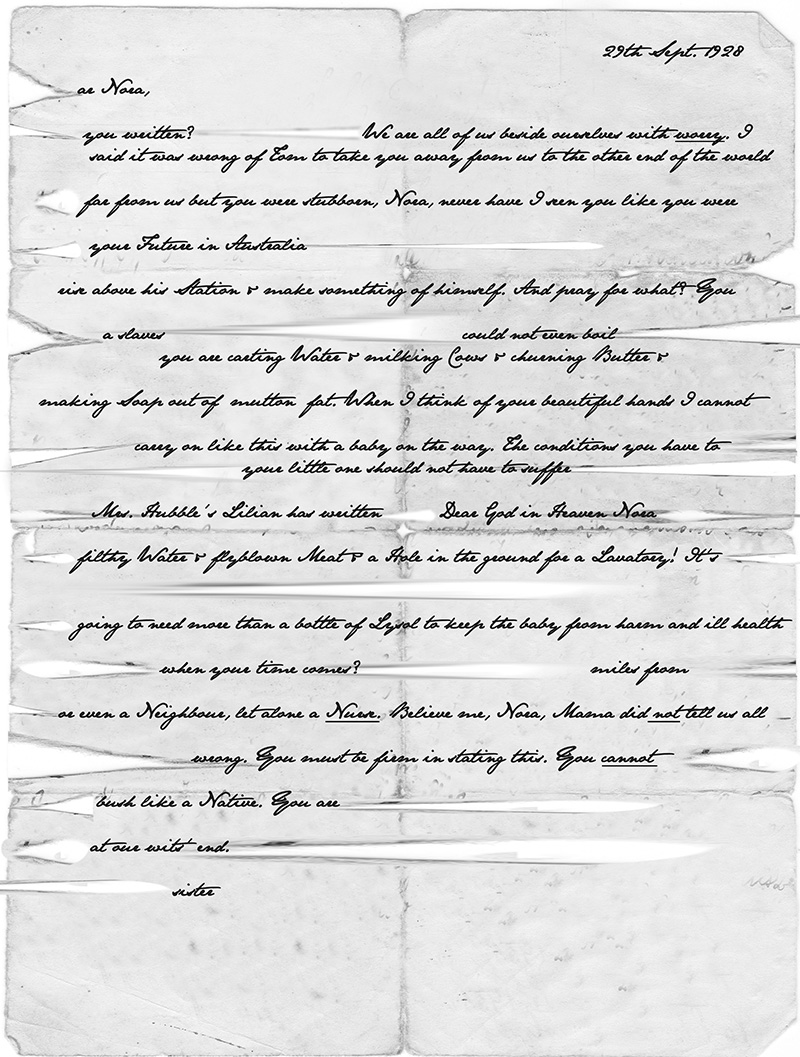 29th Sept. 1928
ar Nora,
you written? We are all of us beside ourselves with worry. I
said it was wrong of Tom to take you away from us to the other end of the world
far from us but you were stubborn, Nora, never have I seen you like you were
your Future in Australia
rise above his Station & make something of himself. And pray for what? You
a slaves could not even boil
you are carting Water & milking Cows & churning Butter &
making Soap out of mutton fat. When I think of your beautiful hands I cannot
carry on like this with a baby on the way. The conditions you have to
your little one should not have to suffer
Mrs. Hubble's Lilian has written Dear God in Heaven Nora
filthy Water & flyblown Meat & a Hole in the ground for a Lavatory! It's
going to need more than a bottle of Lysol to keep the baby from harm and ill health
when your time comes? miles from
or even a Neighbour, let alone a Nurse. Believe me, Nora, Mama did not tell us all
wrong. You must be firm in stating this. You cannot
bush like a Native. You are
at our wits' end.
sister